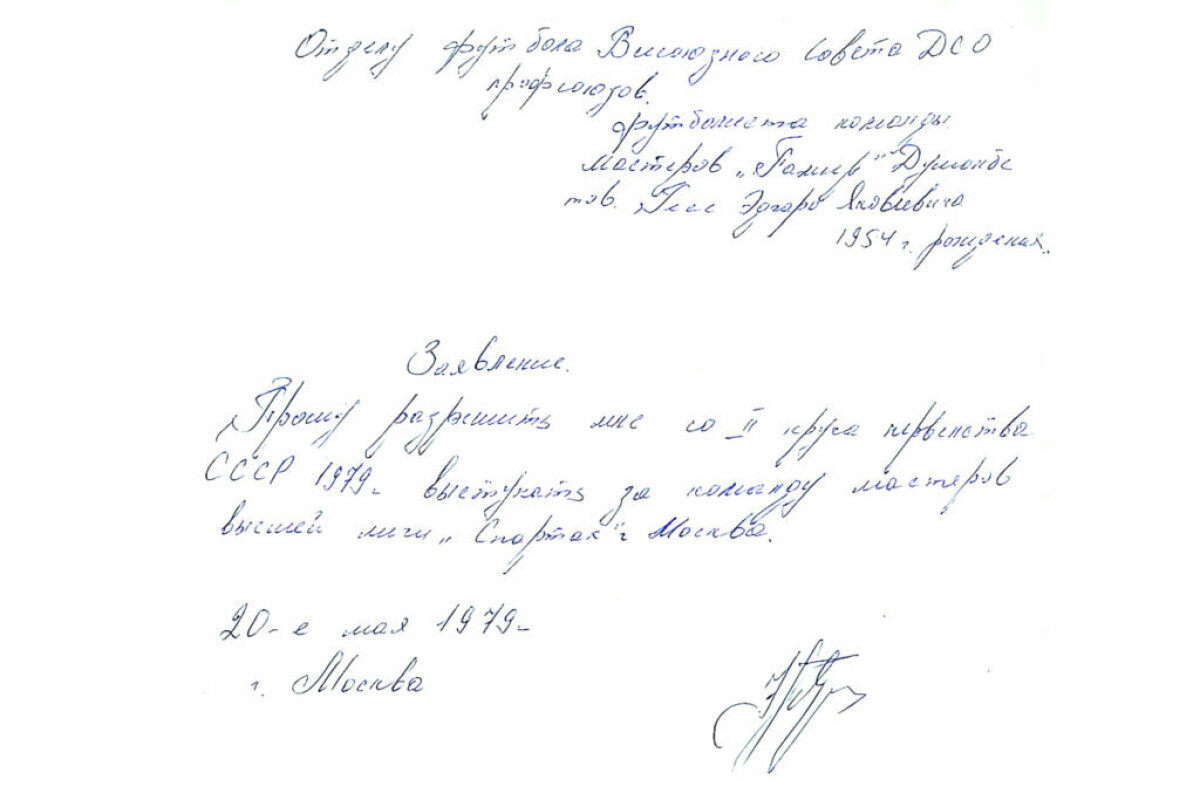 Отделу футбола Всесоюзного Совета ДСО
профсоюзов.
футболиста команды
мастеров „Памир" Душанбе
тов. Гесс Эдгара Яковлевича
1954 г. рождения.
Заявление.
Прошу разрешить мне со II круга первенства
СССР 1979г. выступать за команду мастеров
высшей лиги „Спартак" г Москва.
20-е мая 1979г.
г. Москва